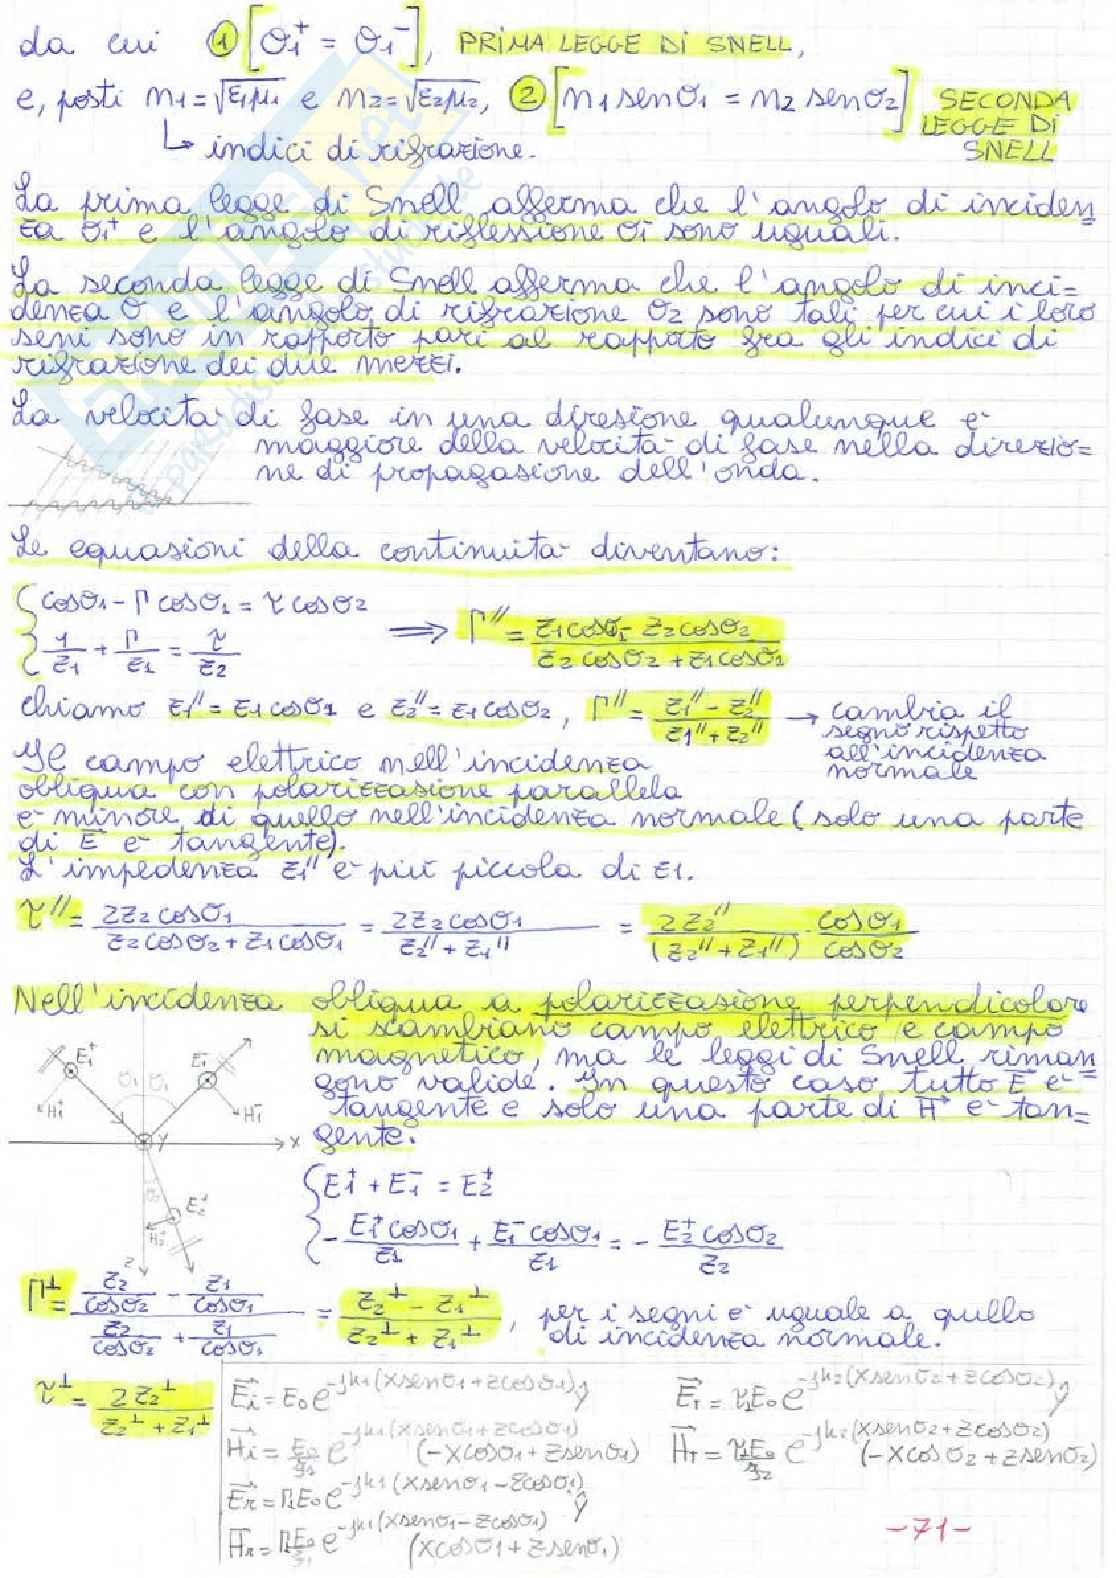 da cui ① [θ₁⁺ = θ₁⁻], PRIMA LEGGE DI SNELL,
e, posti n₁=√ε₁μ₁ e n₂=√ε₂μ₂, ② [n₁ senθ₁ = n₂ senθ₂] SECONDA LEGGE DI SNELL
↳ indici di rifrazione.
La prima legge di Snell afferma che l'angolo di inciden=
za θ₁⁺ e l'angolo di riflessione θ₁⁻ sono uguali.
La seconda legge di Snell afferma che l'angolo di inci=
denza θ e l'angolo di rifrazione θ₂ sono tali per cui i loro
seni sono in rapporto pari al rapporto fra gli indici di
rifrazione dei due mezzi.
La velocità di fase in una direzione qualunque è
maggiore della velocità di fase nella direzio=
ne di propagazione dell'onda.
Le equazioni della continuità diventano:
{ cosθ₁ - Γ cosθ₁ = τ cosθ₂
{ 1/z₁ + Γ/z₁ = τ/z₂ ⟹ Γ// = (z₁cosθ₁ - z₂cosθ₂)/(z₂cosθ₂ + z₁cosθ₁)
chiamo z₁// = z₁cosθ₁ e z₂// = z₁cosθ₂, Γ// = (z₁// - z₂//)/(z₁// + z₂//) → cambia il
segno rispetto
all'incidenza
normale
Il campo elettrico nell'incidenza
obliqua con polarizzazione parallela
è minore di quello nell'incidenza normale (solo una parte
di E è tangente).
L'impedenza z₁// è più piccola di z₁.
τ// = 2z₂cosθ₁/(z₂cosθ₂ + z₁cosθ₁) = 2z₂cosθ₁/(z₂// + z₁//) = 2z₂///(z₂// + z₁//) cosθ₁/cosθ₂
Nell'incidenza obliqua a polarizzazione perpendicolare
si scambiano campo elettrico e campo
magnetico, ma le leggi di Snell riman=
gono valide. In questo caso tutto E è
tangente e solo una parte di H è tan=
gente.
E₁⁺ E₁⁻
θ₁ θ₁
H₁⁺ H₁⁻
y x
θ₂ E₂⁺
H₂⁺
z
{ E₁⁺ + E₁⁻ = E₂⁺
{ -E₁⁺cosθ₁/z₁ + E₁⁻cosθ₁/z₁ = -E₂⁺cosθ₂/z₂
Γ⊥ = (z₂/cosθ₂ - z₁/cosθ₁)/(z₂/cosθ₂ + z₁/cosθ₁) = (z₂⊥ - z₁⊥)/(z₂⊥ + z₁⊥), per i segni è uguale a quello
di incidenza normale.
τ⊥ = 2z₂⊥/(z₂⊥ + z₁⊥)
E⃗i = E₀ e^-jk₁(xsenθ₁+zcosθ₁) ŷ
H⃗i = E₀/η₁ e^-jk₁(xsenθ₁+zcosθ₁) (-xcosθ₁+zsenθ₁)
E⃗r = Γ⊥E₀ e^-jk₁(xsenθ₁-zcosθ₁) ŷ
H⃗r = Γ⊥E₀/η₁ e^-jk₁(xsenθ₁-zcosθ₁) (xcosθ₁+zsenθ₁)
E⃗т = τ⊥E₀ e^-jk₂(xsenθ₂+zcosθ₂) ŷ
H⃗т = τ⊥E₀/η₂ e^-jk₂(xsenθ₂+zcosθ₂) (-xcosθ₂+zsenθ₂)
-71-